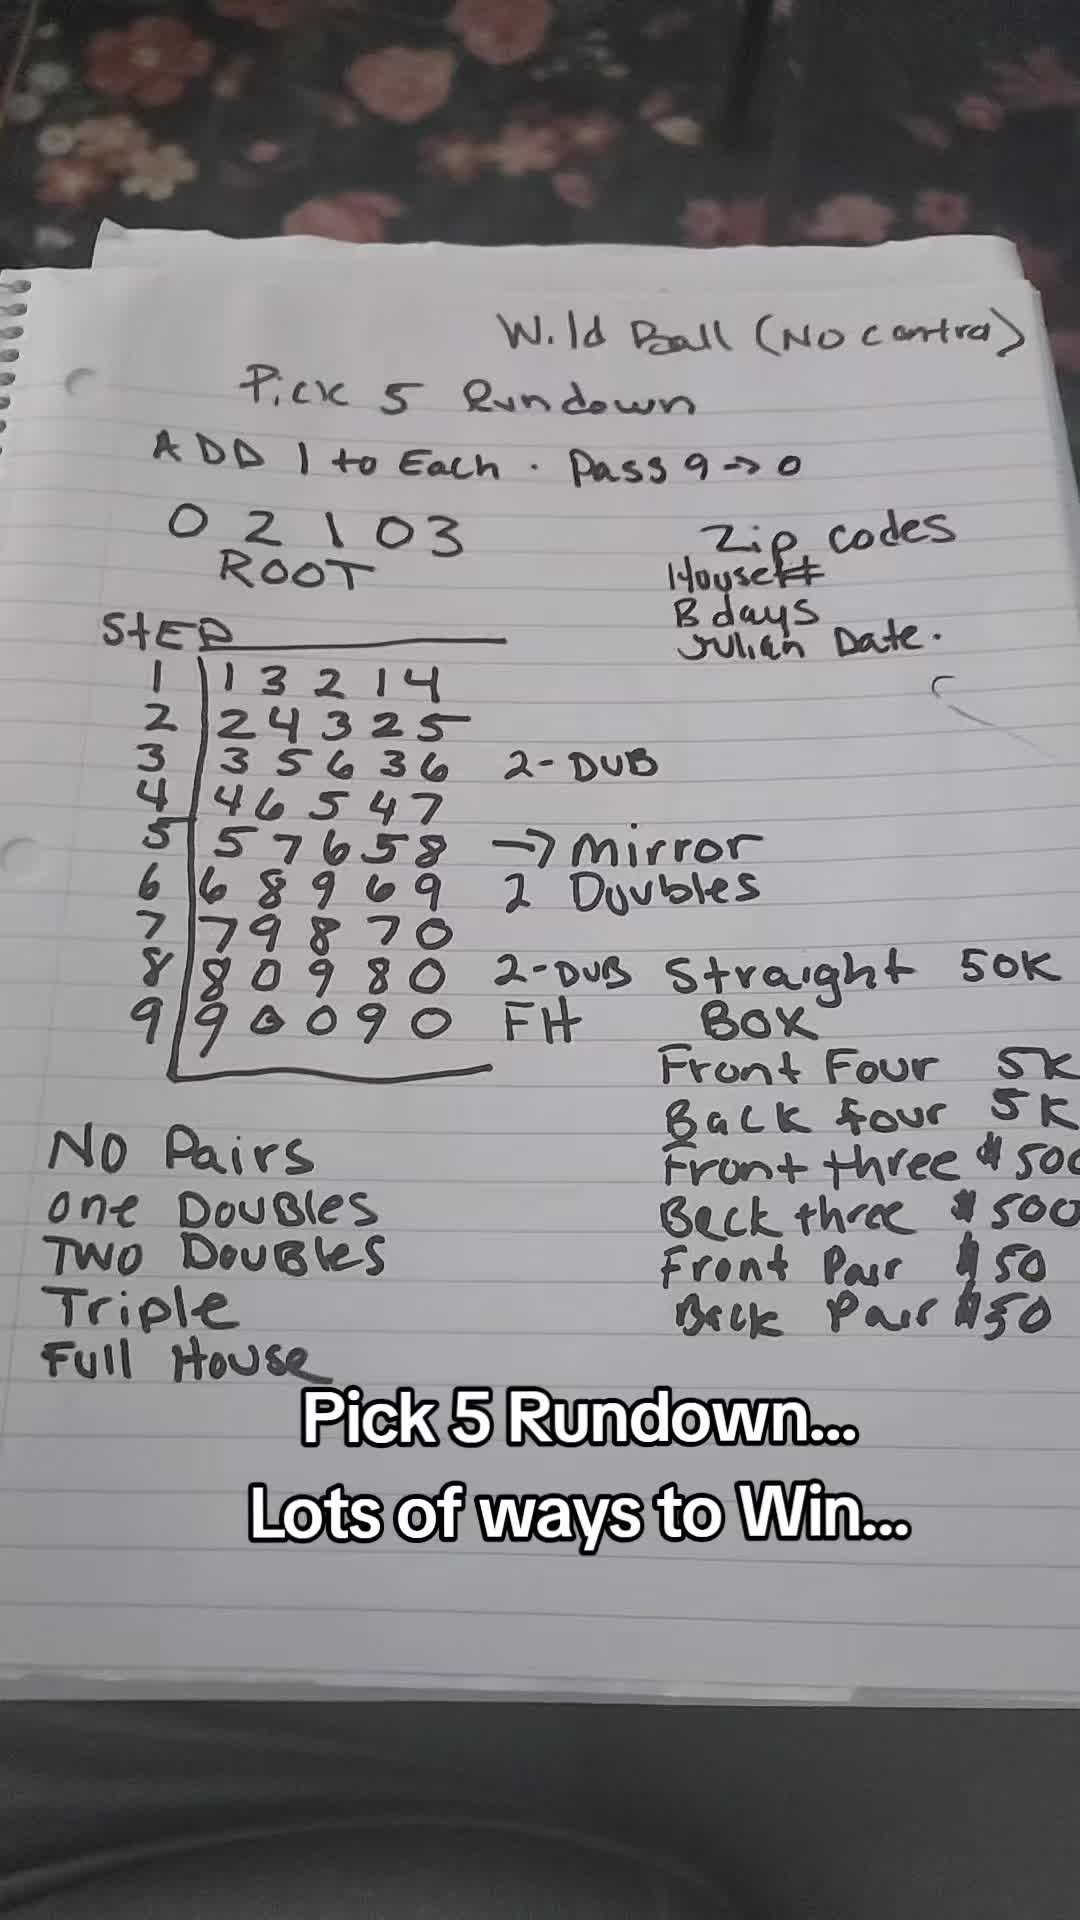 Wild Ball (No contra)
Pick 5 Rundown
ADD 1 to Each . Pass 9 -> 0
0 2 1 0 3
ROOT
Zip codes
House #
B days
Julian Date.
StEP
1 1 3 2 1 4
2 2 4 3 2 5
3 3 5 6 3 6 2-DUB
4 4 6 5 4 7
5 5 7 6 5 8 -> mirror
6 6 8 9 6 9 2 Doubles
7 7 9 8 7 0
8 8 0 9 8 0 2-DUB
9 9 0 0 9 0 FH
Straight 50K
BOX
Front Four 5K
Back four 5K
Front three $500
Back three $500
Front Pair $50
Back Pair $50
No Pairs
one DouBles
TWO DouBles
Triple
Full House
Pick 5 Rundown...
Lots of ways to Win...